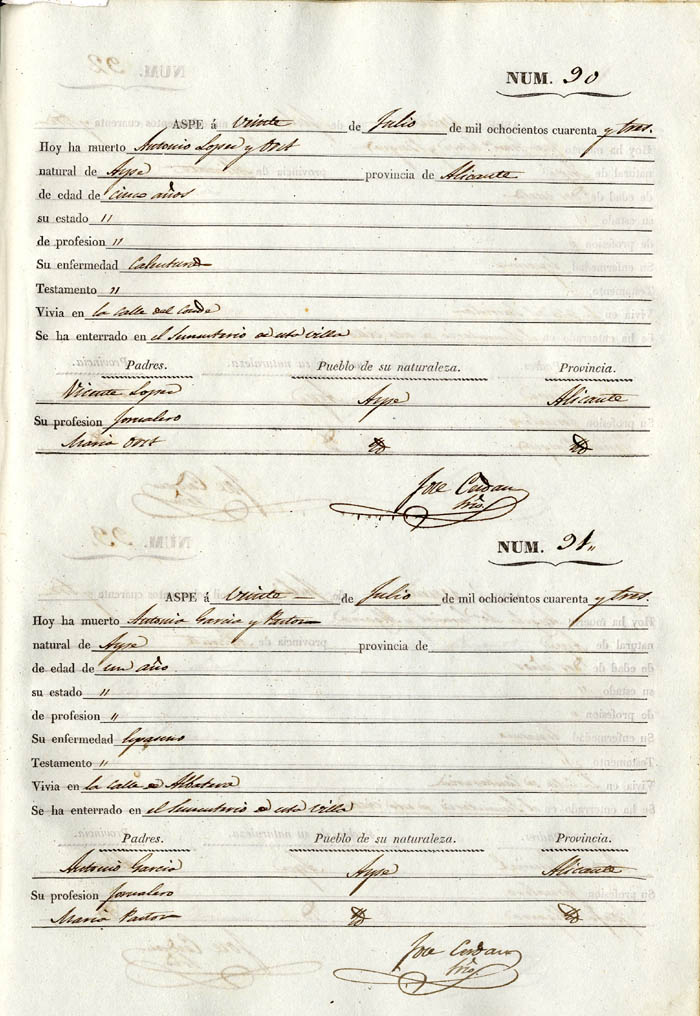 NUM. 90
ASPE á Veinte de Julio de mil ochocientos cuarenta y tres.
Hoy ha muerto Antonio Lopez y
natural de Aspe provincia de Alicante
de edad de cinco años
su estado "
de profesion "
Su enfermedad Calentura
Testamento "
Vivia en la calle del Conde
Se ha enterrado en el Sementerio de esta villa
Padres. Pueblo de su naturaleza. Provincia.
Vicente Lopez Aspe Alicante
Su profesion Jornalero
Maria
Jose Cerdan
NUM. 91"
ASPE á Veinte de Julio de mil ochocientos cuarenta y tres.
Hoy ha muerto Antonio Garcia y Pastor
natural de Aspe provincia de
de edad de un año
su estado "
de profesion "
Su enfermedad
Testamento "
Vivia en la calle de Albatera
Se ha enterrado en el Sementerio de esta villa
Padres. Pueblo de su naturaleza. Provincia.
Antonio Garcia Aspe Alicante
Su profesion Jornalero
Maria Pastor
Jose Cerdan